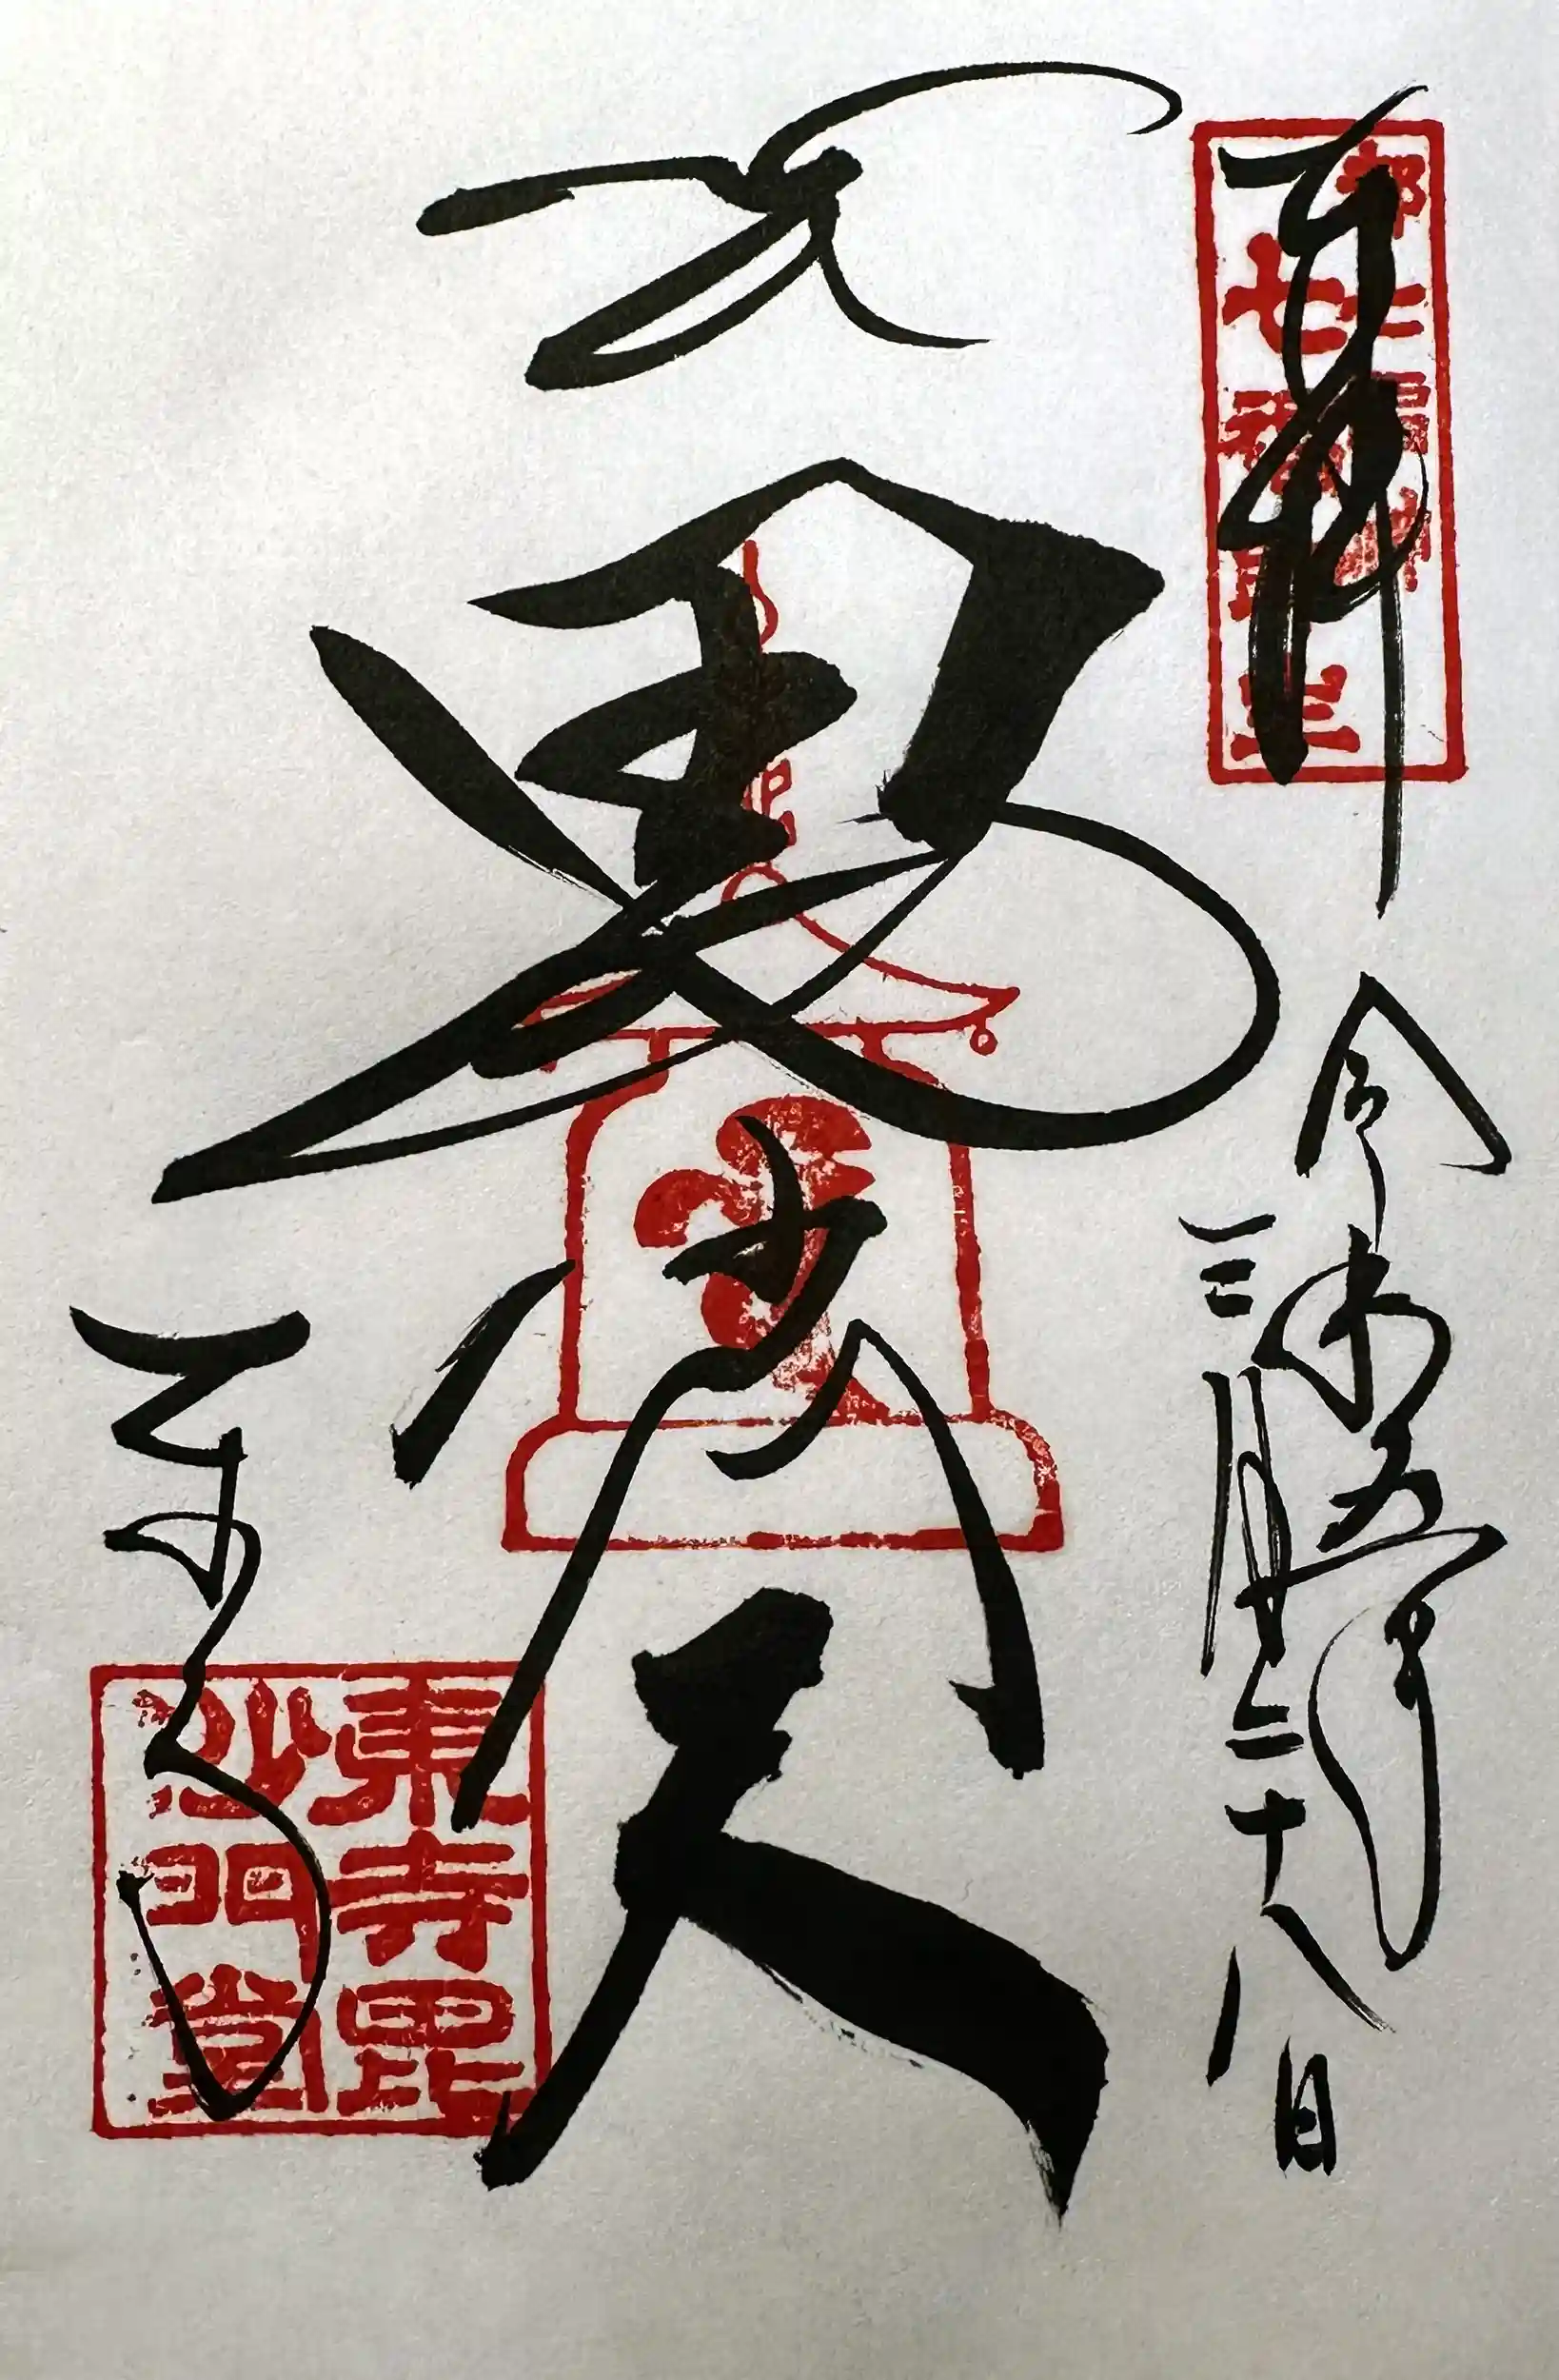 奉拝
都七福神
令和五年
三月二十八日
毘沙門天
東寺
東寺毘
沙門堂